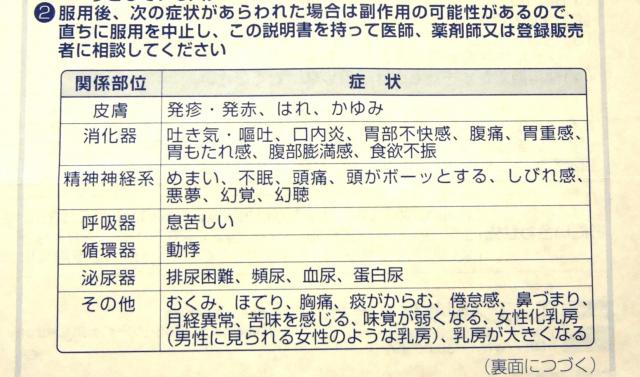 ❷服用後、次の症状があらわれた場合は副作用の可能性があるので、
直ちに服用を中止し、この説明書を持って医師、薬剤師又は登録販売
者に相談してください
関係部位 症状
皮膚 発疹・発赤、はれ、かゆみ
消化器 吐き気・嘔吐、口内炎、胃部不快感、腹痛、胃重感、
胃もたれ感、腹部膨満感、食欲不振
精神神経系 めまい、不眠、頭痛、頭がボーッとする、しびれ感、
悪夢、幻覚、幻聴
呼吸器 息苦しい
循環器 動悸
泌尿器 排尿困難、頻尿、血尿、蛋白尿
その他 むくみ、ほてり、胸痛、痰がからむ、倦怠感、鼻づまり、
月経異常、苦味を感じる、味覚が弱くなる、女性化乳房
(男性に見られる女性のような乳房)、乳房が大きくなる
(裏面につづく)